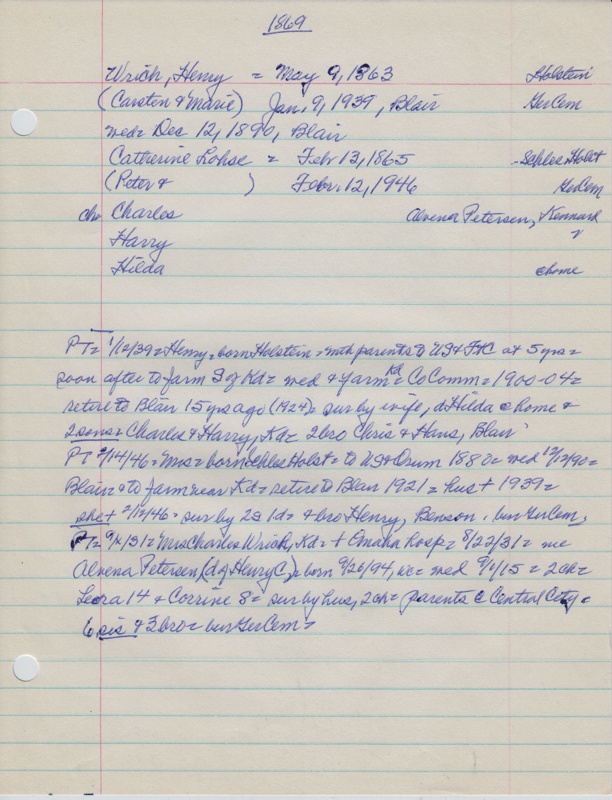 1869
Wrich, Henry = May 9, 1863 Holstein
(Carsten & Marie) Jan. 9, 1939, Blair GerCem
med= Dec 12, 1890, Blair
Catherine Lohse = Feb 13, 1865 Schles Holst
(Peter & ) Febr. 12, 1946 GerCem
chr Charles Alvena Petersen, Kennard
Harry
Hilda @home
PT= 1/12/39= Henry= born Holstein= with parents to US& at 5 yrs=
soon after to farm S of Kd= med & farm Kd= CoComm= 1900-04=
retire to Blair 15 yrs ago (1924)= sur by wife, d Hilda @ home &
2 sons= Charles & Harry, Kd= 2 bro Chris & Hans, Blair
PT 2/14/46= Mrs= born Schles Holst= to US& 1880= med 12/12/90=
Blair= to farm near Kd= retire to Blair 1921= hus + 1939=
she + 2/12/46= sur by 2s 1d & bro Henry, Benson. bur GerCem,
PT= Mrs Charles Wrich, Kd= + Omaha hosp= 8/22/31= nee
Alvena Petersen, (d of Henry C)= born 9/26/94, = med 9/1/15= 2ch=
Leora 14 & Corrine 8= sur by hus, 2ch= parents @ Central City=
6 sis & 3 bro= bur GerCem=